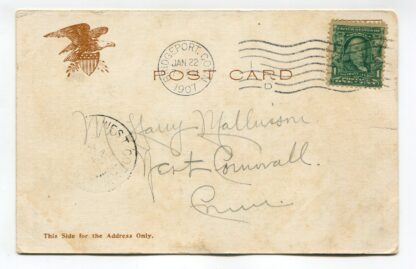 BRIDGEPORT, CONN.
JAN 22
1907
D
POST CARD
WEST CO
Mr Harry Mallinson
West Cornwall.
Conn.
This Side for the Address Only.